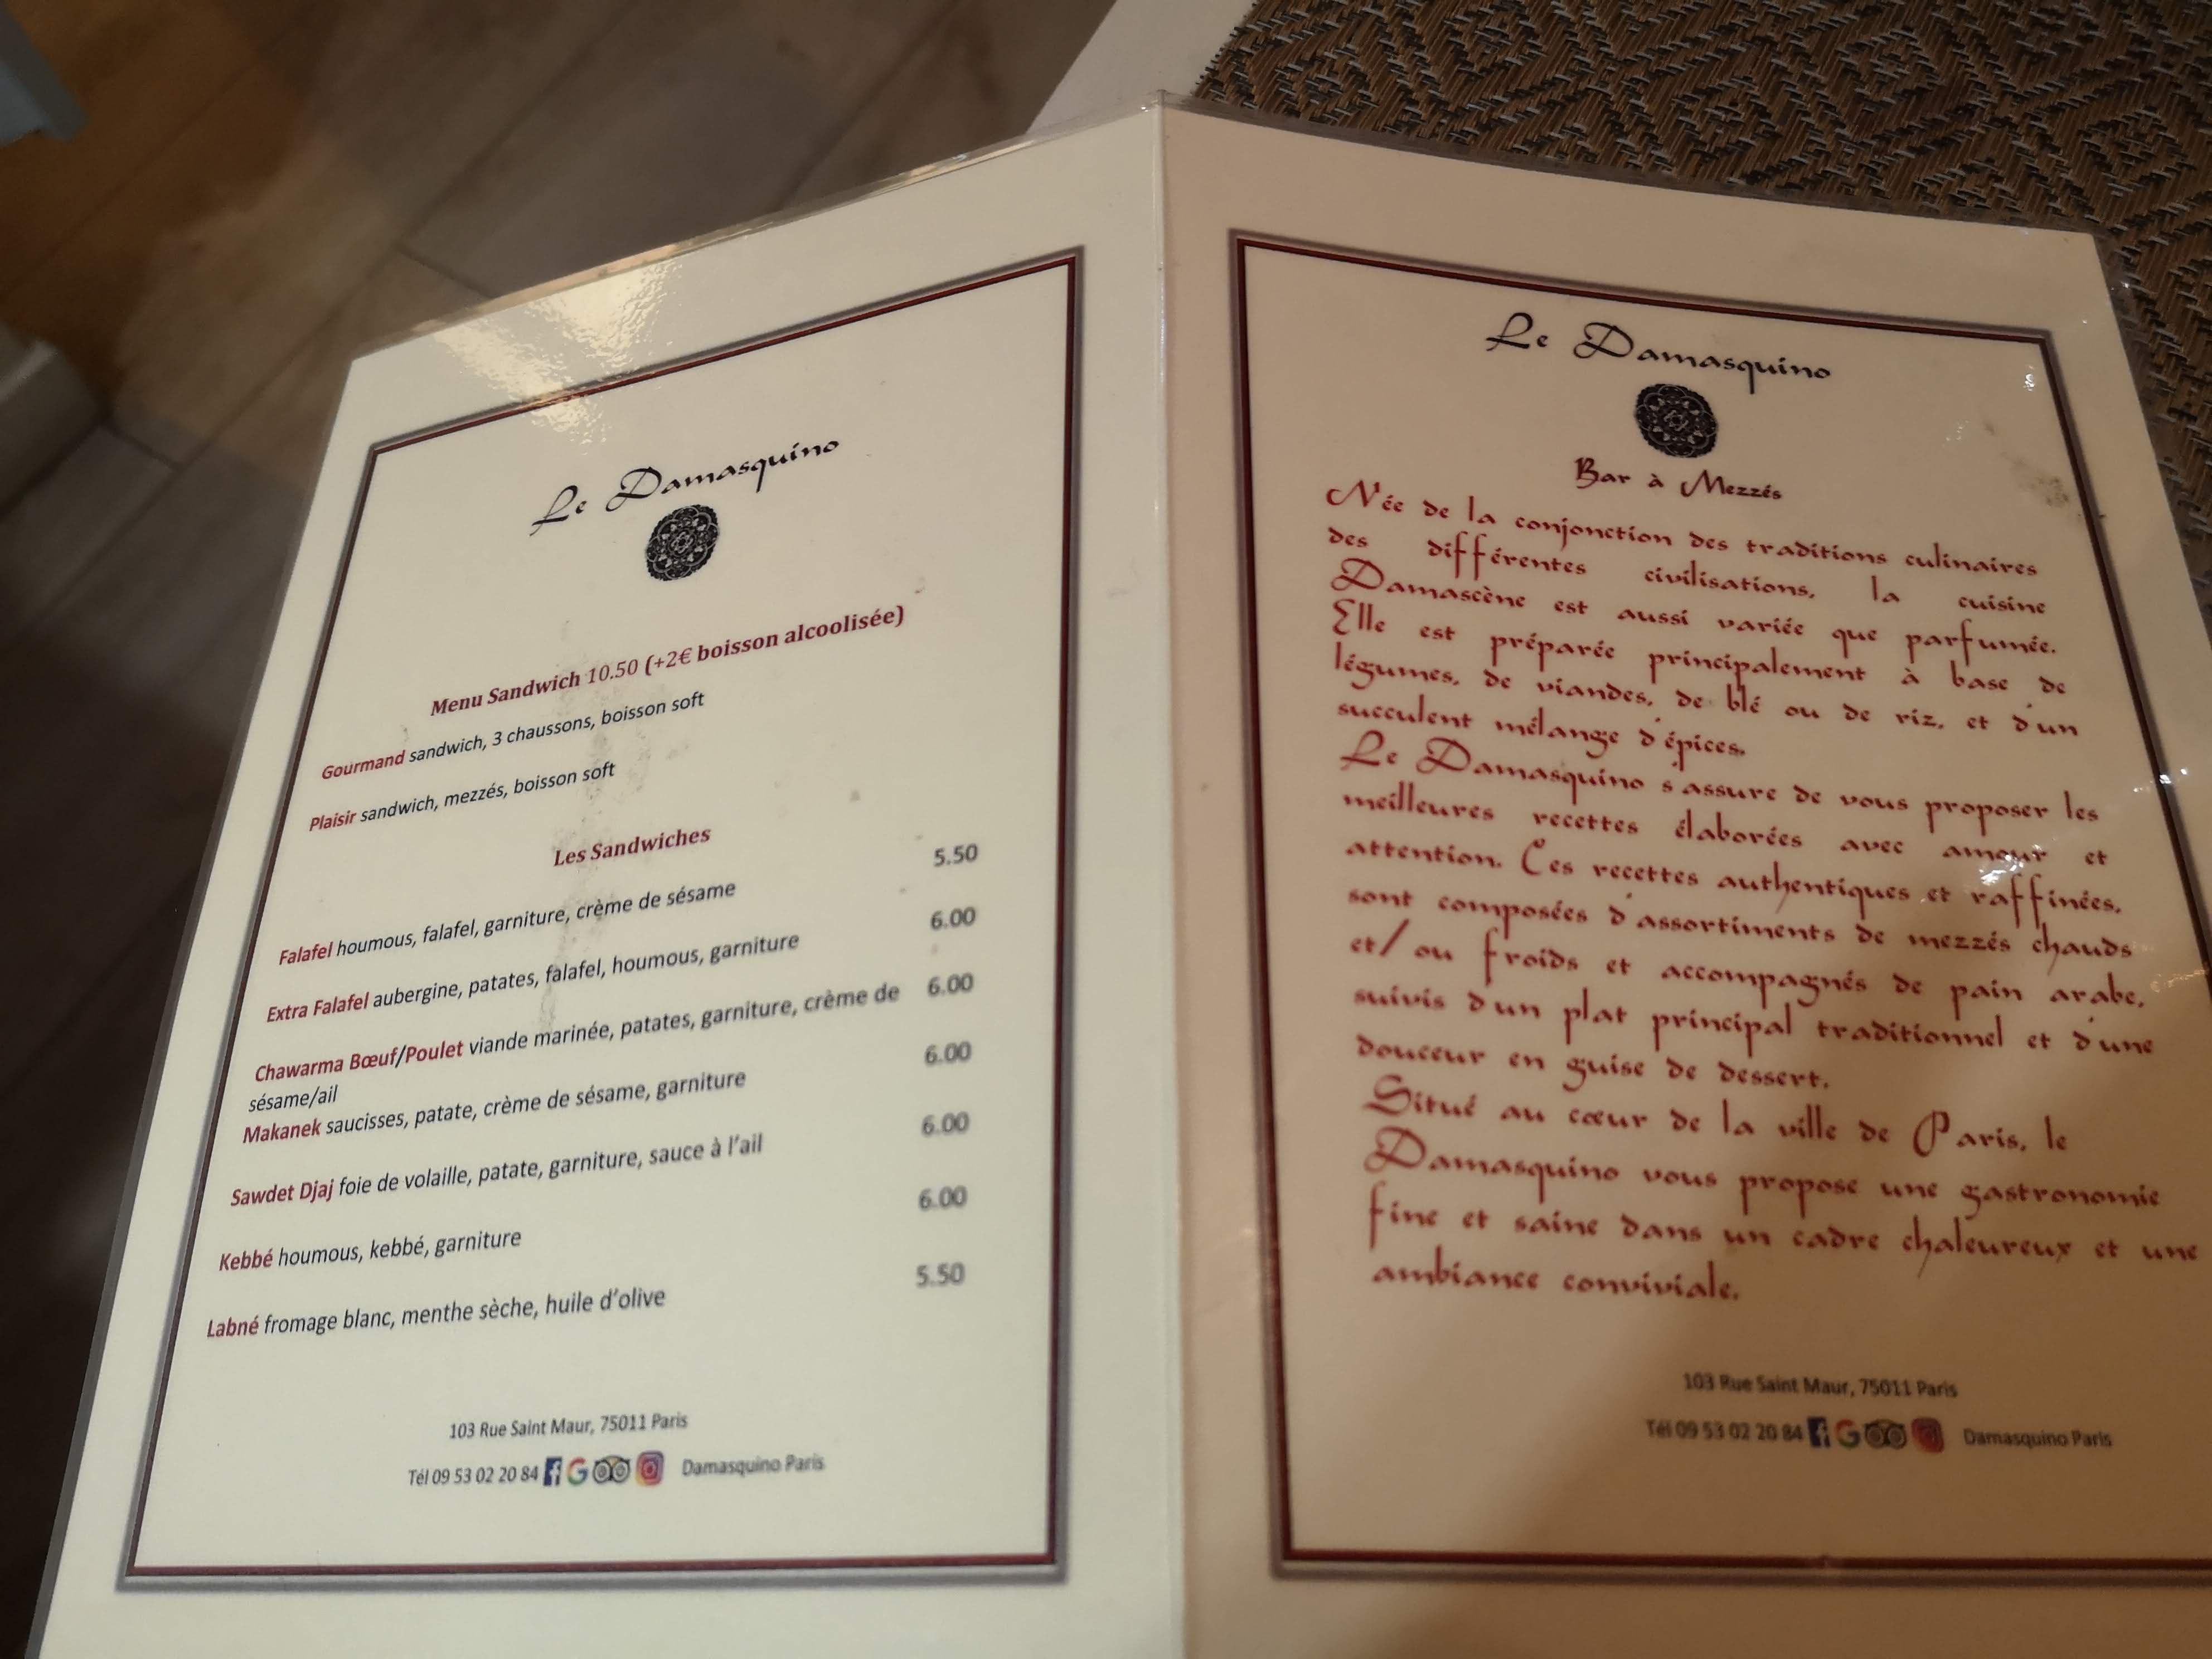 Le Damasquino
Menu Sandwich 10.50 (+2€ boisson alcoolisée)
Gourmand sandwich, 3 chaussons, boisson soft
Plaisir sandwich, mezzés, boisson soft
Les Sandwiches
Falafel houmous, falafel, garniture, crème de sésame 5.50
Extra Falafel aubergine, patates, falafel, houmous, garniture 6.00
Chawarma Bœuf/Poulet viande marinée, patates, garniture, crème de 6.00
sésame/ail
Makanek saucisses, patate, crème de sésame, garniture 6.00
Sawdet Djaj foie de volaille, patate, garniture, sauce à l'ail 6.00
Kebbé houmous, kebbé, garniture 6.00
Labné fromage blanc, menthe sèche, huile d'olive 5.50
103 Rue Saint Maur, 75011 Paris
Tél 09 53 02 20 84 Damasquino Paris
Le Damasquino
Bar à Mezzés
Née de la conjonction des traditions culinaires
des différentes civilisations, la cuisine
Damascène est aussi variée que parfumée.
Elle est préparée principalement à base de
légumes, de viandes, de blé ou de riz, et d'un
succulent mélange d'épices.
Le Damasquino s'assure de vous proposer les
meilleures recettes élaborées avec amour et
attention. Ces recettes authentiques et raffinées,
sont composées d'assortiments de mezzés chauds
et/ou froids et accompagnés de pain arabe,
suivis d'un plat principal traditionnel et d'une
douceur en guise de dessert.
Situé au cœur de la ville de Paris, le
Damasquino vous propose une gastronomie
fine et saine dans un cadre chaleureux et une
ambiance conviviale.
103 Rue Saint Maur, 75011 Paris
Tél 09 53 02 20 84 Damasquino Paris